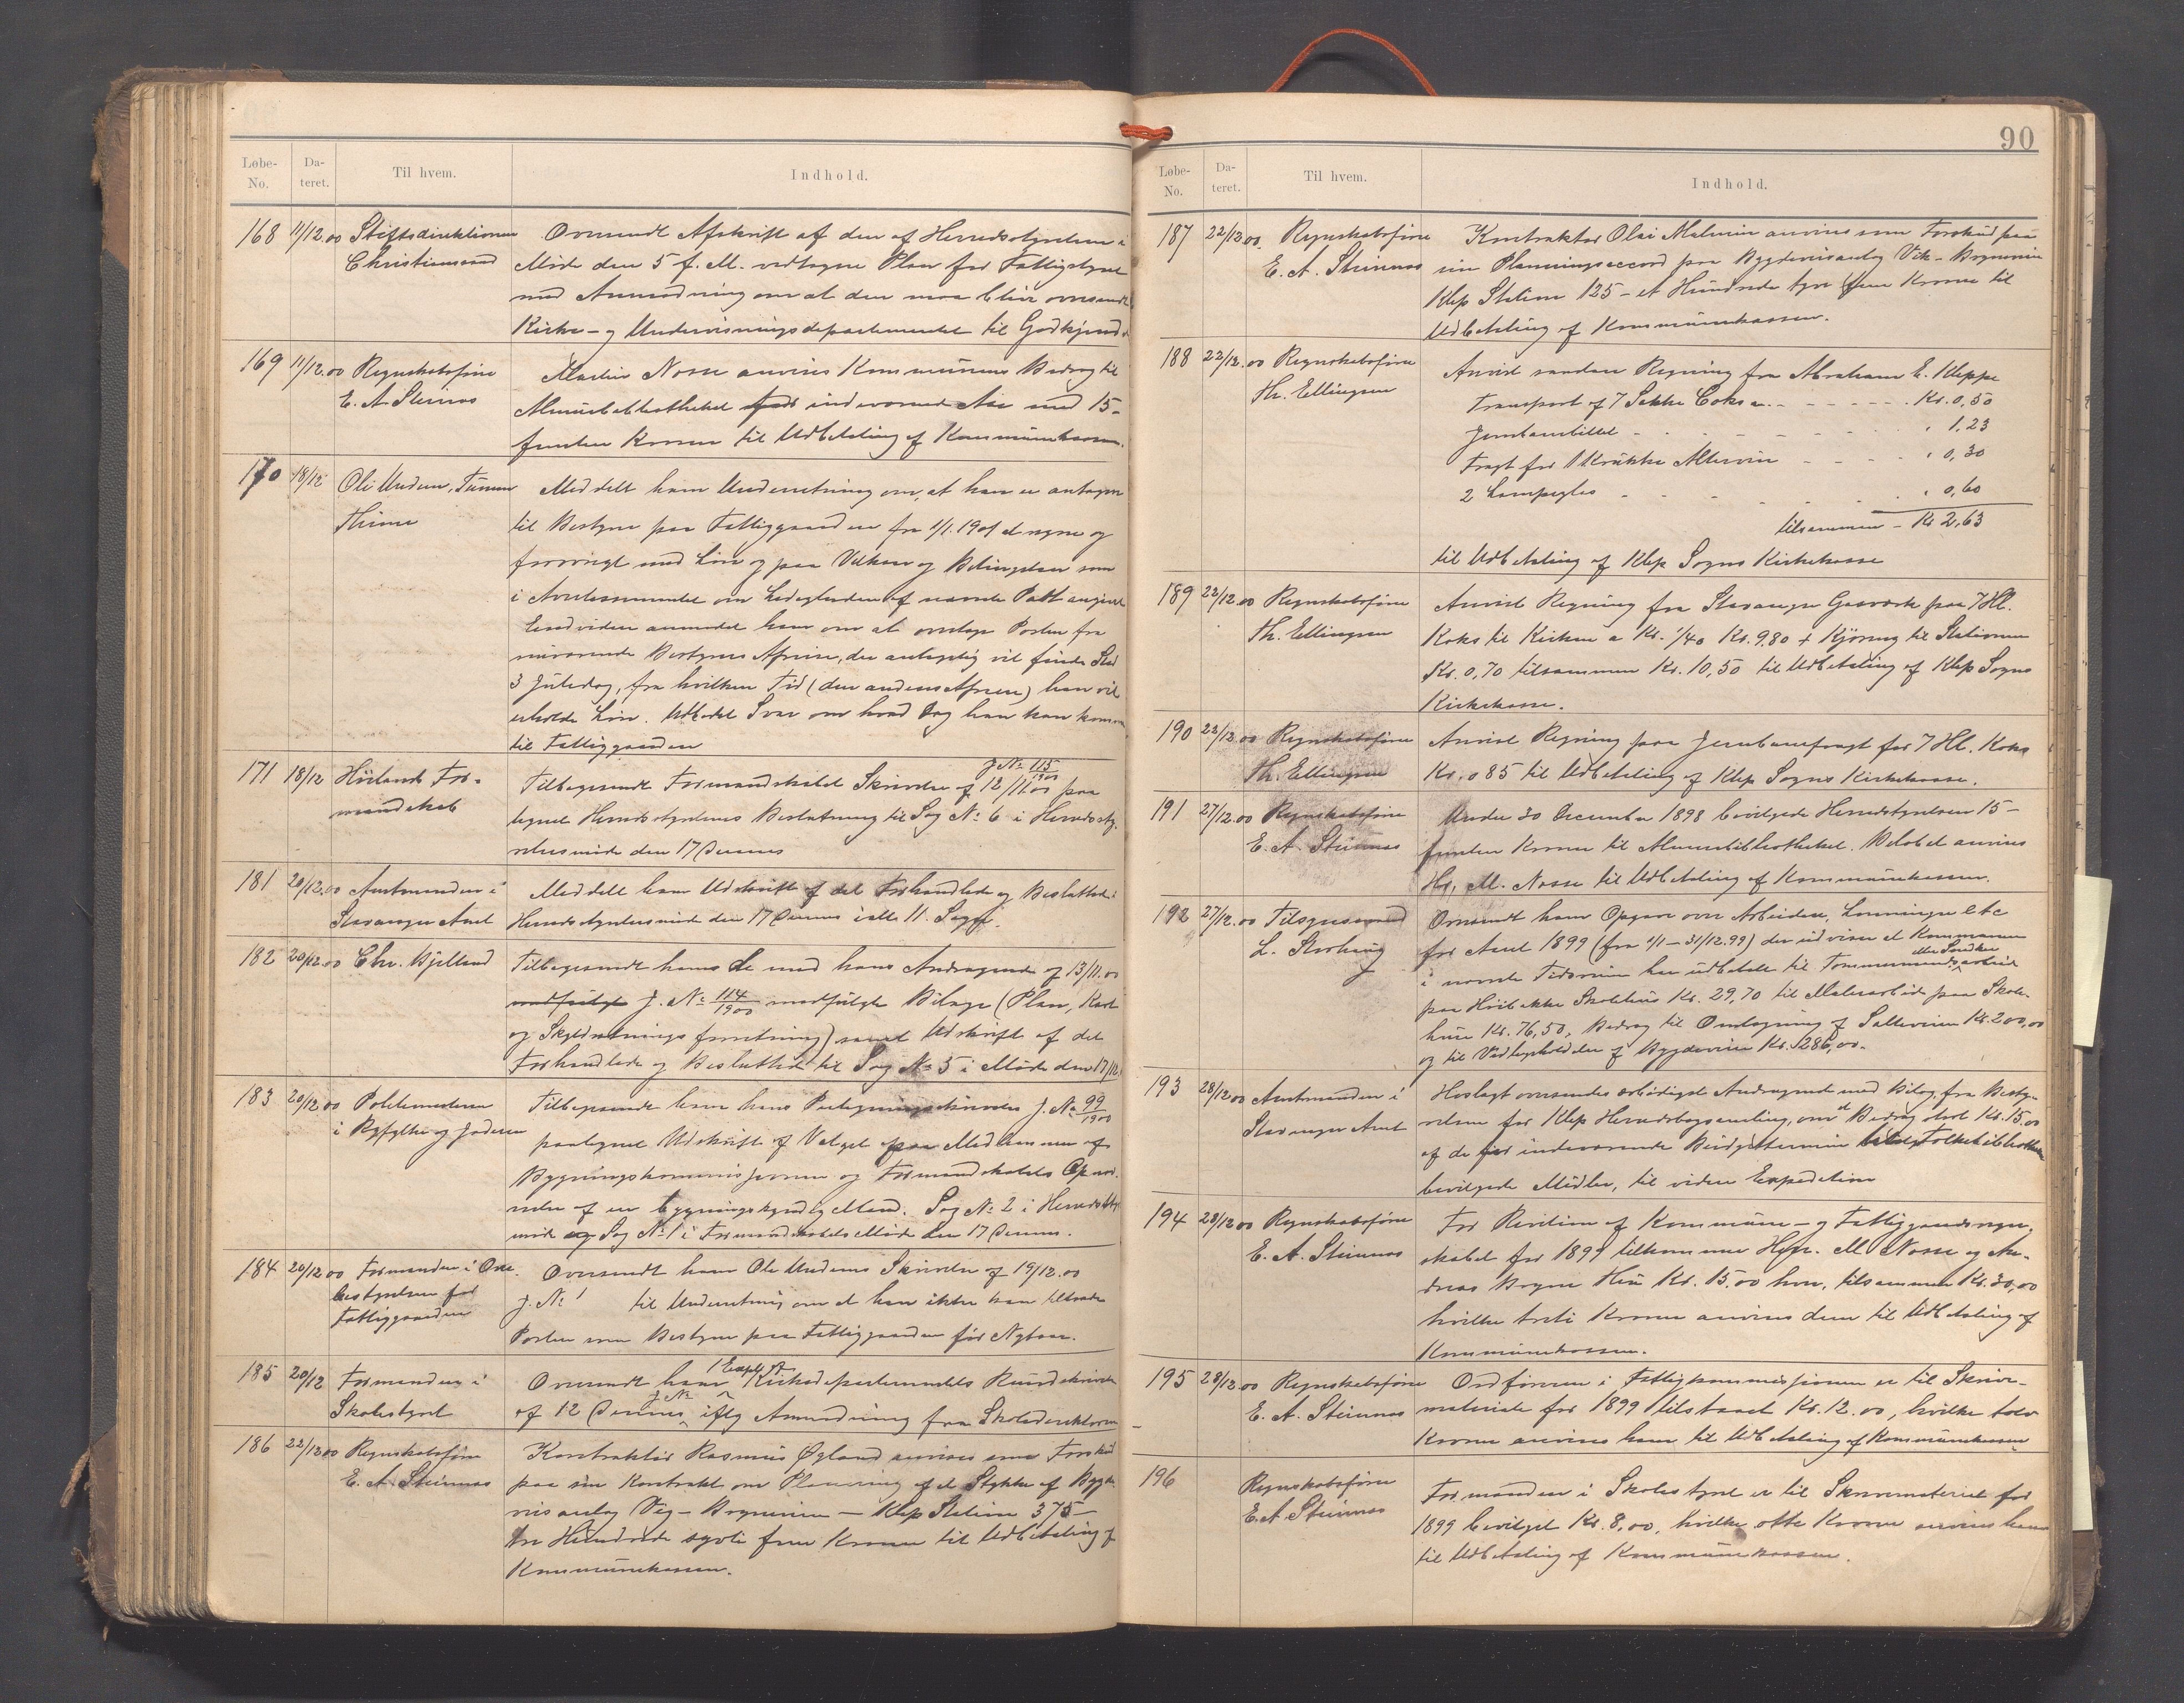 90
Løbe-No. Da-teret. Til hvem. Indhold.
168 11/12.00 Stiftsdirektionen Christianssand
Oversendt Afskrift af den af Herredsstyrelsen i
Møde den 5 f. M. vedtagne Plan for Fattigstyret
med Anmodning om at den maa blive oversendt
Kirke- og Undervisningsdepartementet til Godkjendelse
169 11/12.00 Regnskabsfører E. A. Steinnes
Martin Nosse anvises Kommunens Bidrag til
Almuebibliotheket for indeværende Aar med 15-
femten Kroner til Udbetaling af Kommunekassen.
170 18/12 Ole Undem, Tunem Thime
Meddelt ham Underretning om, at han er antagen
til Bestyrer paa Fattiggaarden fra 1/1.1901 at regne og
forøvrigt med Løn og paa Vilkaar og Betingelser som
i Avertissementet om Ledigheden af nævnte Post angivet
Endvidere anmodet ham om at overtage Posten fra
nuværende Bestyrers Afreise, der antagelig vil finde Sted
3 Juledag, fra hvilken Tid (den andens Afreise) han vil
erholde Løn. Udbedet Svar om hvad Dag han kan komme
til Fattiggaarden
171 18/12 Høilands Formandskab
J. No 115/1900
Tilbagesendt Formandskabet Skrivelse af 12/11.00 paa
tegnet Herredsstyrelsens Beslutning til Sag No 6 i Herredssty-
relsesmøde den 17 Dennes
181 20/12.00 Amtmanden i Stavanger Amt
Meddelt ham Udskrift af det Forhandlede og Besluttede i
Herredsstyrelsesmøde den 17 Dennes i alle 11. Sager.
182 20/12.00 Chr. Bjelland
Tilbagesendt ham de med hans Andragende af 13/11.00
medfulgte J. No 114/1900 medfulgte Bilage (Plan, Kart
og Skylddelingsforretning) samt Udskrift af det
Forhandlede og Besluttede til Sag No 5 i Møde den 17/12
183 20/12.00 Politimesteren i Ryfylke og Jæderen
Tilbagesendt ham hans Paategningsskrivelse J. No 99/1900
paategnet Udskrift af Valget paa Medlemmer af
Bygningskommissionen og Formandskabets Opnæv-
nelse af en bygningskyndig Mand. Sag No 2 i Herredssty
møde og Sag No 1 i Formandskabets Møde den 17 Dennes.
184 20/12.00 Formanden i Overbestyrelsen for Fattiggaarden
Oversendt ham Ole Undems Skrivelse af 19/12.00
J. No 1 til Underretning om at han ikke kan tiltræde
Posten som Bestyrer paa Fattiggaarden før Nytaar.
185 20/12 Formanden i Skolestyret
Oversendt ham 1 Expl. af Kirkedepartementets Rundskrivelse
af 12 Dennes J. No iflg Anmodning fra Skoledirektøren
186 22/12.00 Regnskabsfører E. A. Steinnes
Kontraktør Rasmus Øgland anvises som Forskud
paa sin Kontrakt om Planering af et Stykke af Bygde
veisanlæg Vig - Brynevein - Klep Station 375-
tre Hundrede sytti fem Kroner til Udbetaling af
Kommunekassen.
Løbe-No. Da-teret. Til hvem. Indhold.
187 22/12.00. Regnskabsfører E. A. Steinnes
Kontraktør Olai Malmin anvises som Forskud paa
sin Planeringsaccord paa Bygdeveisanlæg Vik - Brynevein
Klep Station 125 - et Hundrede tyve fem Kroner til
Udbetaling af Kommunekassen.
188 22/12.00 Regnskabsfører Th. Ellingsen
Anvist saadan Regning fra Abraham E. Kleppe
Transport af 7 Sække Coks Kr. 0,50
Jernbanebillet " 1.23
Fragt for 1 Krukke Altervin " 0,30
2 Lampeglas " 0,60
tilsammen - Kr 2,63
til Udbetaling af Klep Sogns Kirkekasse
189 22/12.00 Regnskabsfører Th. Ellingsen
Anvist Regning fra Stavanger Gasværk paa 7 Hl.
Koks til Kirken a Kr. 1/40 Kr. 9.80 + Kjøring til Stationen
Kr. 0,70 tilsammen Kr. 10,50 til Udbetaling af Klep Sogns
Kirkekasse.
190 22/12.00 Regnskabsfører Th. Ellingsen
Anvist Regning paa Jernbanefragt for 7 Hl. Koks
Kr. 0 85 til Udbetaling af Klep Sogns Kirkekasse.
191 27/12.00 Regnskabsfører E. A. Steinnes
Under 30 December 1898 bevilgede Herredsstyrelsen 15-
femten Kroner til Almuebibliotheket. Beløbet anvises
Hr. M. Nosse til Udbetaling af Kommunekassen.
192 27/12.00 Tilsynsmand L.
Oversendt ham Opgave over Arbeider, Lønninger etc
for Aaret 1899 (fra 1/1 - 31/12.99) der udviser at Kommunen
i nævnte Tidsrum har udbetalt til Tømmermands eller Snedker arbeide
paa Skolehus Kr. 29,70 til Malerarbeide paa Skole-
huse Kr. 76,50, Bidrag til Omlægning af Kr. 200,00
og til Vedligehold af Bygdeveie Kr. 1286,00.
193 28/12.00 Amtmanden i Stavanger Amt
Hoslagt oversendes ærbødigst Andragende med Bilag fra Besty-
relsen for Klep Herredsbogsamling, om et Bidrag stort Kr. 15.00
af de for indeværende Budgettermin Folkebibliotheker
bevilgede Midler, til videre Expedition
194 28/12.00 Regnskabsfører E. A. Steinnes
For Revision af Kommune- og Fattiggaardsregn-
skabet for 1899 tilkommer Hrr. M Nosse og An-
dreas Bryne Hui Kr. 15.00 hver, tilsammen Kr. 30,00
hvilke treti Kroner anvises dem til Udbetaling af
Kommunekassen.
195 28/12.00 Regnskabsfører E. A. Steinnes
Ordføreren i Fattigkommissionen er til Skrive-
materiale for 1899 tilstaaet Kr. 12.00, hvilke tolv
Kroner anvises ham til Udbetaling af Kommunekassen
196 Regnskabsfører E. A. Steinnes
Formanden i Skolestyret er til Skrivemateriel for
1899 bevilget Kr. 8,00, hvilke otte Kroner anvises ham
til Udbetaling af Kommunekassen.